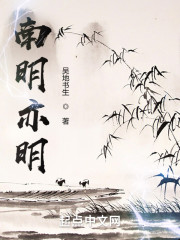 南明亦明
吴地书生 ◎ 著
起点中文网